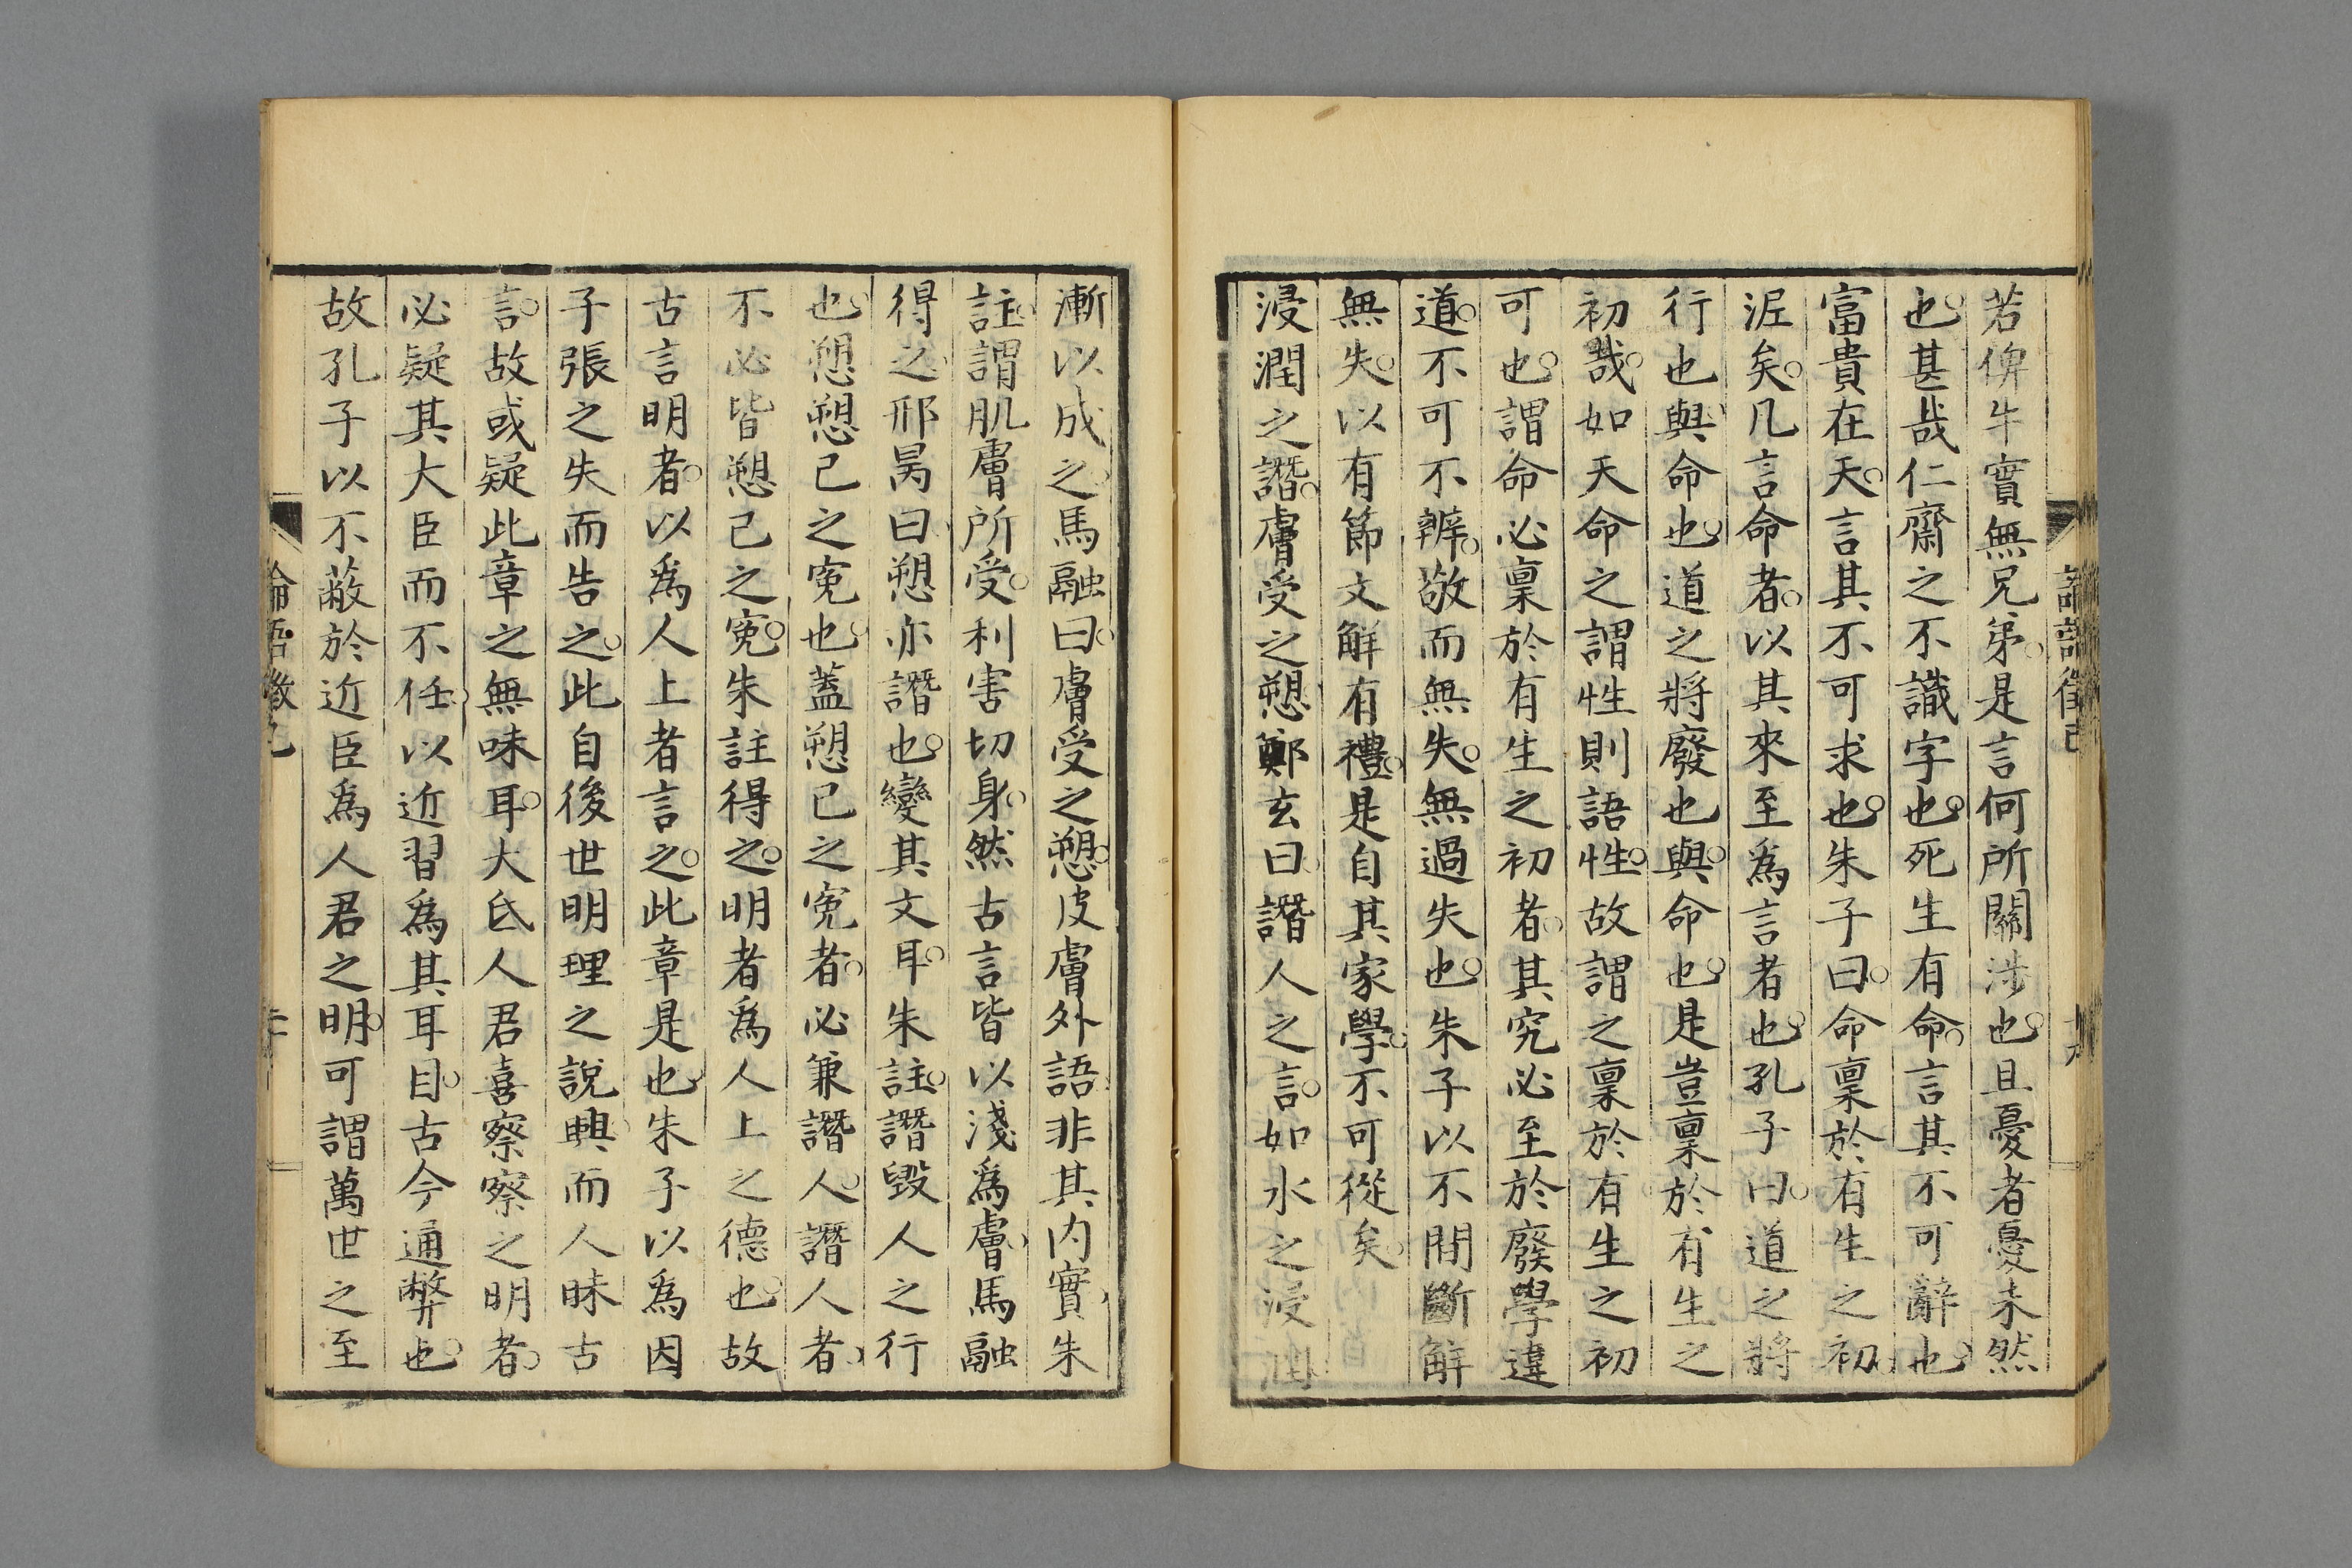 若俾牛實無兄弟是言何所關涉也且憂者憂未然
也甚哉仁齋之不識字也死生有命言其不可辭也
富貴在天言其不可求也朱子曰命稟於有生之初
泥矣凡言命者以其來至爲言者也孔子曰道之將
行也與命也道之將廢也與命也是豈稟於有生之
初哉如天命之謂性則語性故謂之稟於有生之初
可也謂命必稟於有生之初者其究必至於廢學違
道不可不辨敬而無失無過失也朱子以不間斷解
無失以有節文解有禮是自其家學不可從矣
浸潤之譖膚受之愬鄭玄曰譖人之言如水之浸潤
漸以成之馬融曰膚受之愬皮膚外語非其内實朱
註謂肌膚所受利害切身然古言皆以淺爲膚馬融
得之邢昺曰愬亦譖也變其文耳朱註譖毀人之行
也愬愬己之寃也蓋愬己之寃者必兼譖人譖人者
不必皆愬己之寃朱註得之明者爲人上之德也故
古言明者以爲人上者言之此章是也朱子以爲因
子張之失而告之此自後世明理之說興而人昧古
言故或疑此章之無味耳大氐人君喜察察之明者
必疑其大臣而不任以近習爲其耳目古今通弊也
故孔子以不蔽於近臣爲人君之明可謂萬世之至
論語徵己